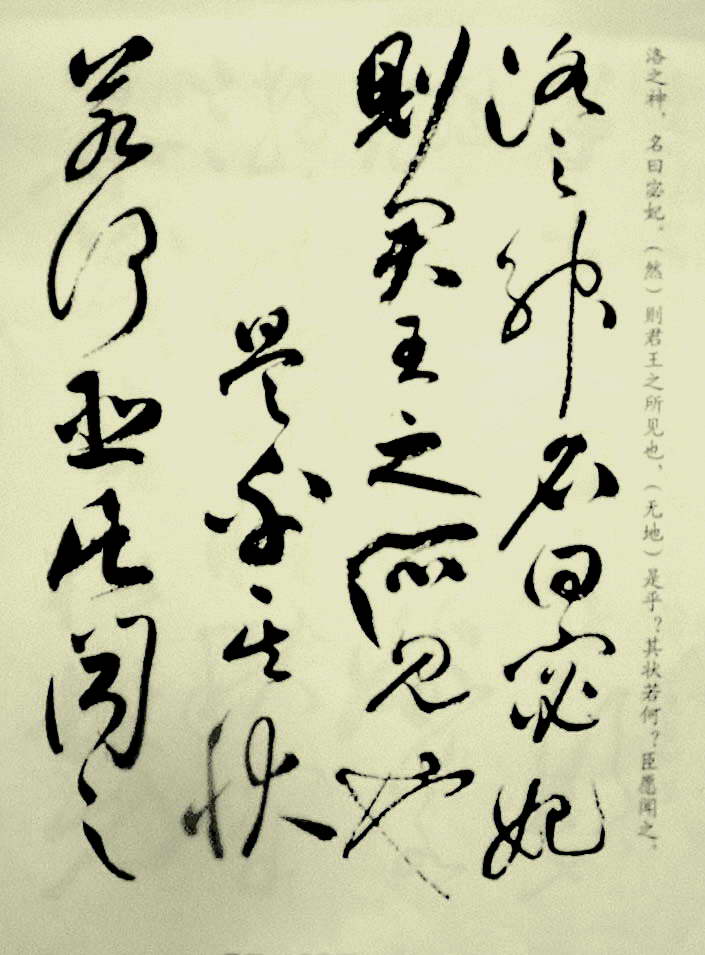 洛之神，名曰宓妃。（然）則君王之所见也，（无地）是乎？其状若何？臣愿闻之。
洛之神名曰宓妃
則君王之所见也
是乎其状
若何臣闻之